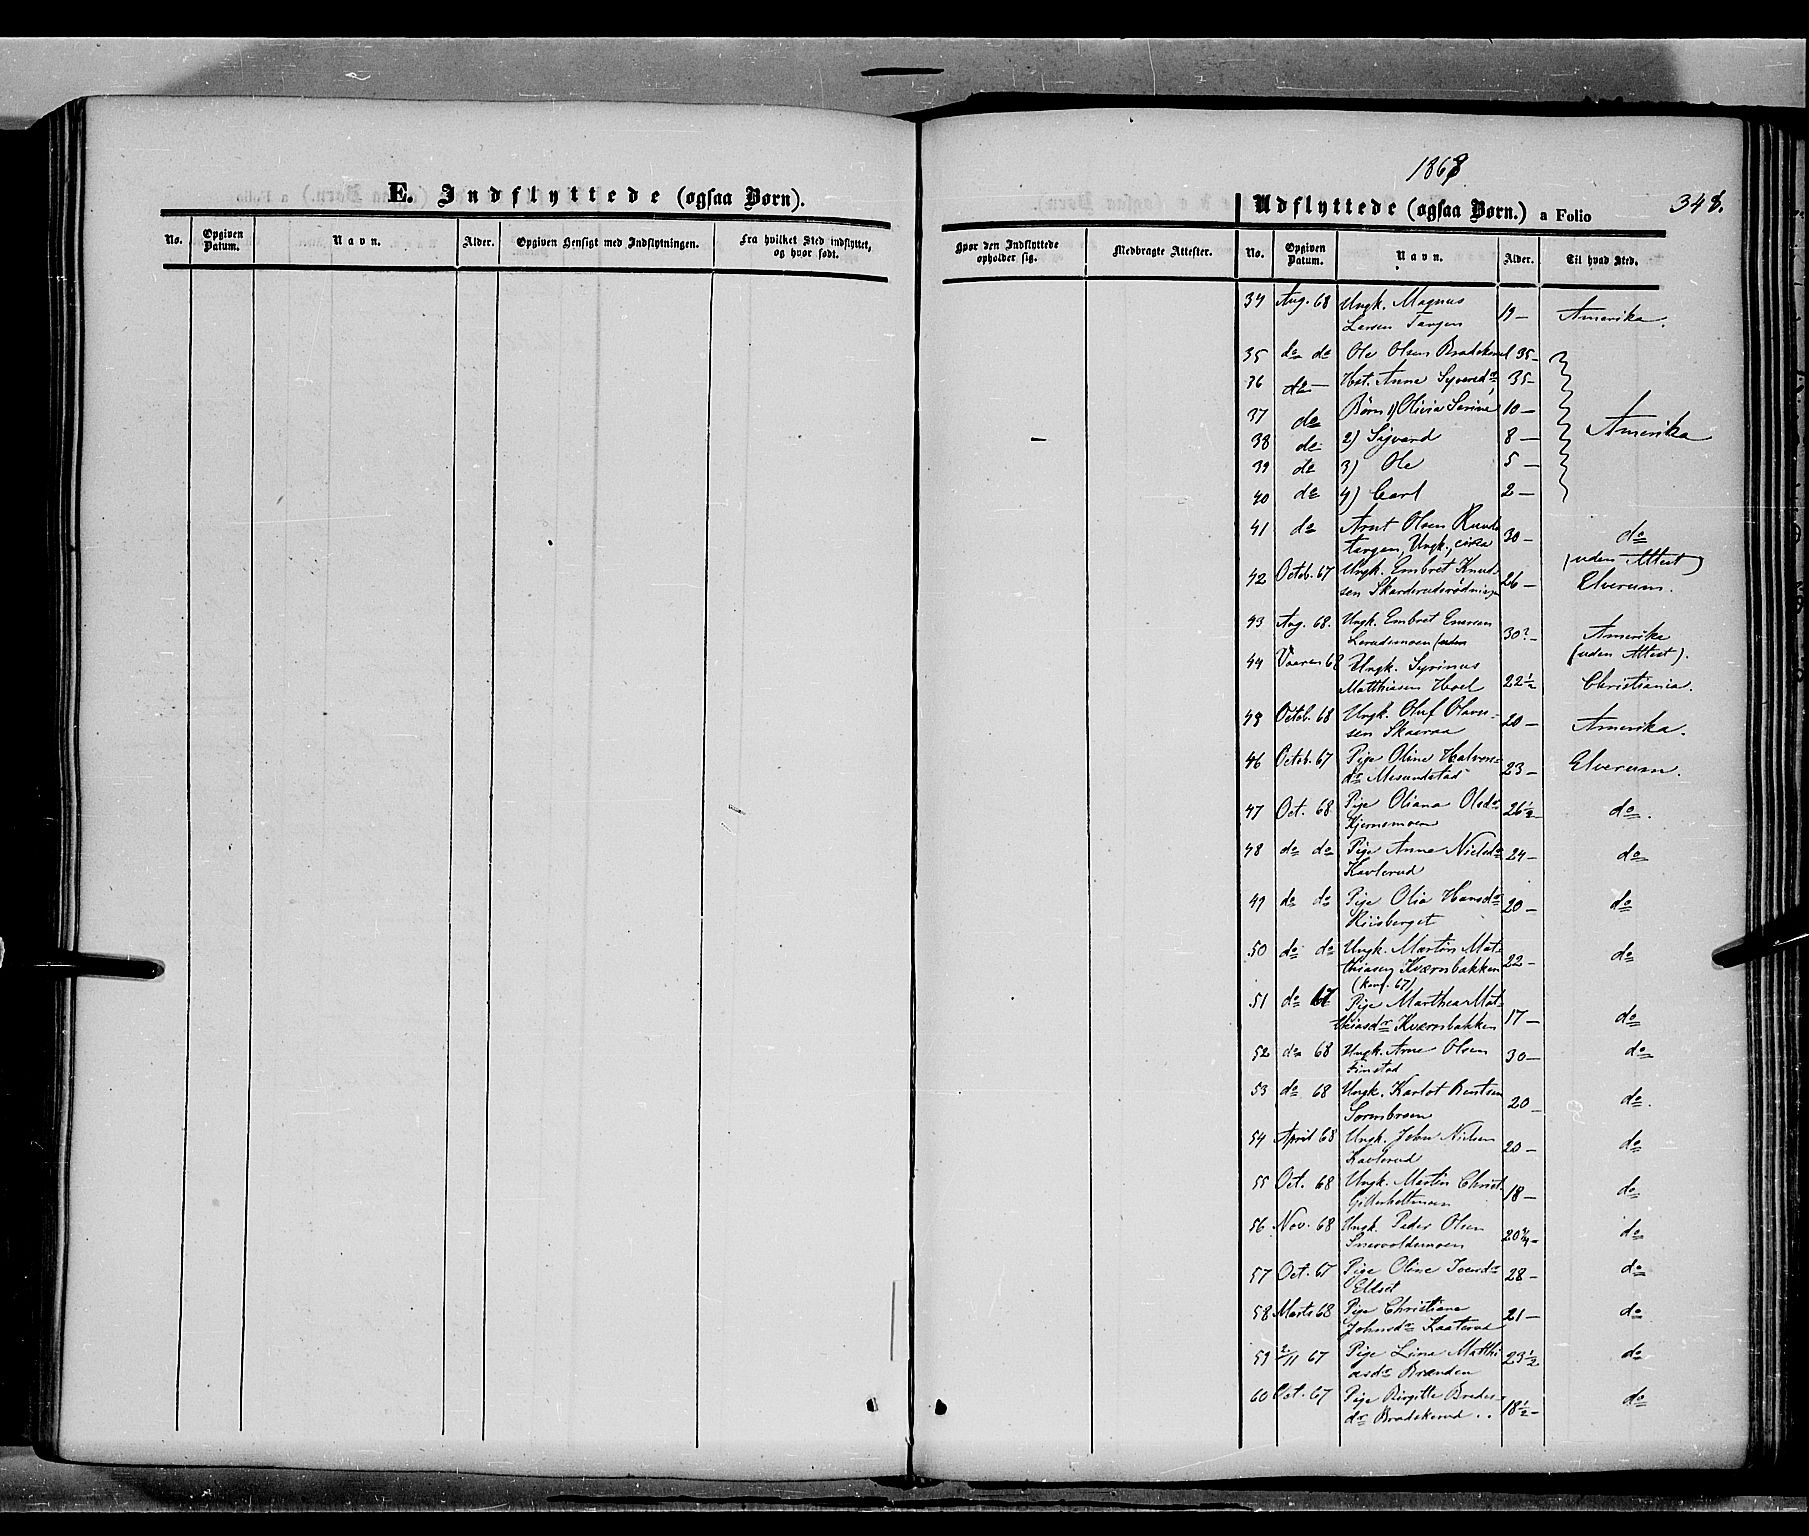 E. Indflyttede (ogsaa Børn).
No. Opgiven Datum. Navn. Alder. Opgiven Hensigt med Indflytningen. Fra hvilket Sted indflyttet, og hvor født.
1868
Udflyttede (ogsaa Børn.) a Folio 348.
Hvor den Indflyttede opholder sig. Medbragte Attester. No. Opgiven Datum. Navn. Alder. Til hvad Sted.
34 Aug. 68 Ungk. Magnus
Larsen Tangen 19 — Amerika.
35 do do Ole Olsen Bradskerud 35 —
36 do — Hst. Anne Syversdr 35 —
37 do Børn 1) Olivia Serine 10 — Amerika
38 do 2) Sigvard 8 —
39 do 3) Ole 5 —
40 do 4) Carl 2 —
41 do Arnt Olsen Ruuds-
tangen, Ungk., circa 30 — do
(uden Attest)
42 Octob. 67 Ungk. Embret Knud-
sen Skarderudsrødningen 26 — Elverum.
43 Aug. 68. Ungk. Embret Enersen
(uden 30? — Amerika
(uden Attest).
44 Vaaren 68 Ungk. Syrinus
Matthiasen Hoel 22½ Christiania.
45 Octob. 68 Ungk. Oluf Olaves-
sen Skaaraa 20 — Amerika.
46 Octob. 67 Pige Oline Halvors-
dr Melundstad 23 — Elverum.
47 Oct. 68 Pige Oliana Olsdr
Kjernemoen 26½ — do.
48 do do Pige Anne Nielsdr
Kavlerud 24 — do
49 do do Pige Olia Hansdr
Riisberget 20 — do
50 do do Ungk. Martin Mat-
thiasen Kværnbakken 22 — do
(konf. 67)
51 do 67 Pige Marthea Mat-
thiasdr Kværnbakken 17 — do
52 do 68 Ungk. Arne Olsen
Finstad 30 — do
53 do 68 Ungk. Karlot Bentsen
Sorknbroen 20 — do.
54 April 68 Ungk. John Nielsen
Kavlerud 20 — do
55 Oct. 68 Ungk. Martin Christ.
18 — do
56 Nov. 68 Ungk. Peder Olsen
Snervoldsmoen 20¾ — do
57 Oct. 67 Pige Oline Iversdr
Eldset 28 — do
58 Marts 68 Pige Christiane
Johnsdr Kaaterud 21 — do
59 2/11 67 Pige Lina Matthi-
asdr Brænden 23½ do
60 Oct. 67 Pige Birgitte Breders-
dr Bradskerud 18½ — do